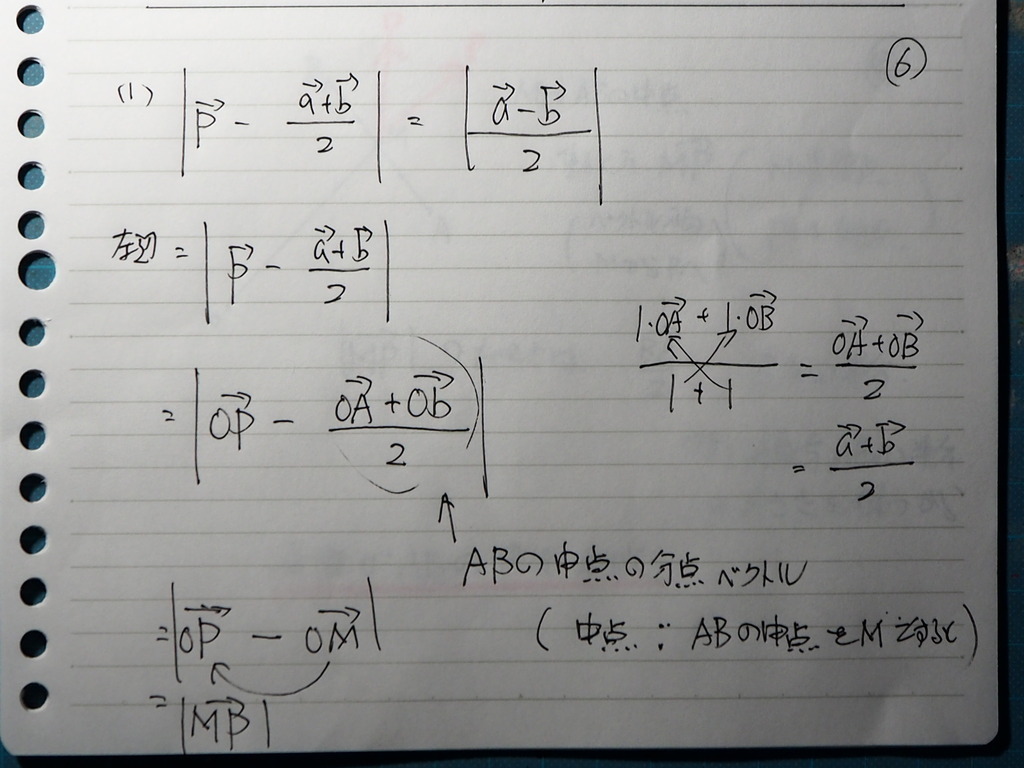 ⑥
(1) |p⃗ - (a⃗+b⃗)/2| = |(a⃗-b⃗)/2|
左辺 = |p⃗ - (a⃗+b⃗)/2|
= |OP⃗ - (OA⃗+Ob⃗)/2|
(1·OA⃗ + 1·OB⃗)/(1+1) = (OA⃗+OB⃗)/2
= (a⃗+b⃗)/2
↑
ABの中点の分点ベクトル
(中点∵ ABの中点をMとすると)
= |OP⃗ - OM⃗|
= |MB⃗|